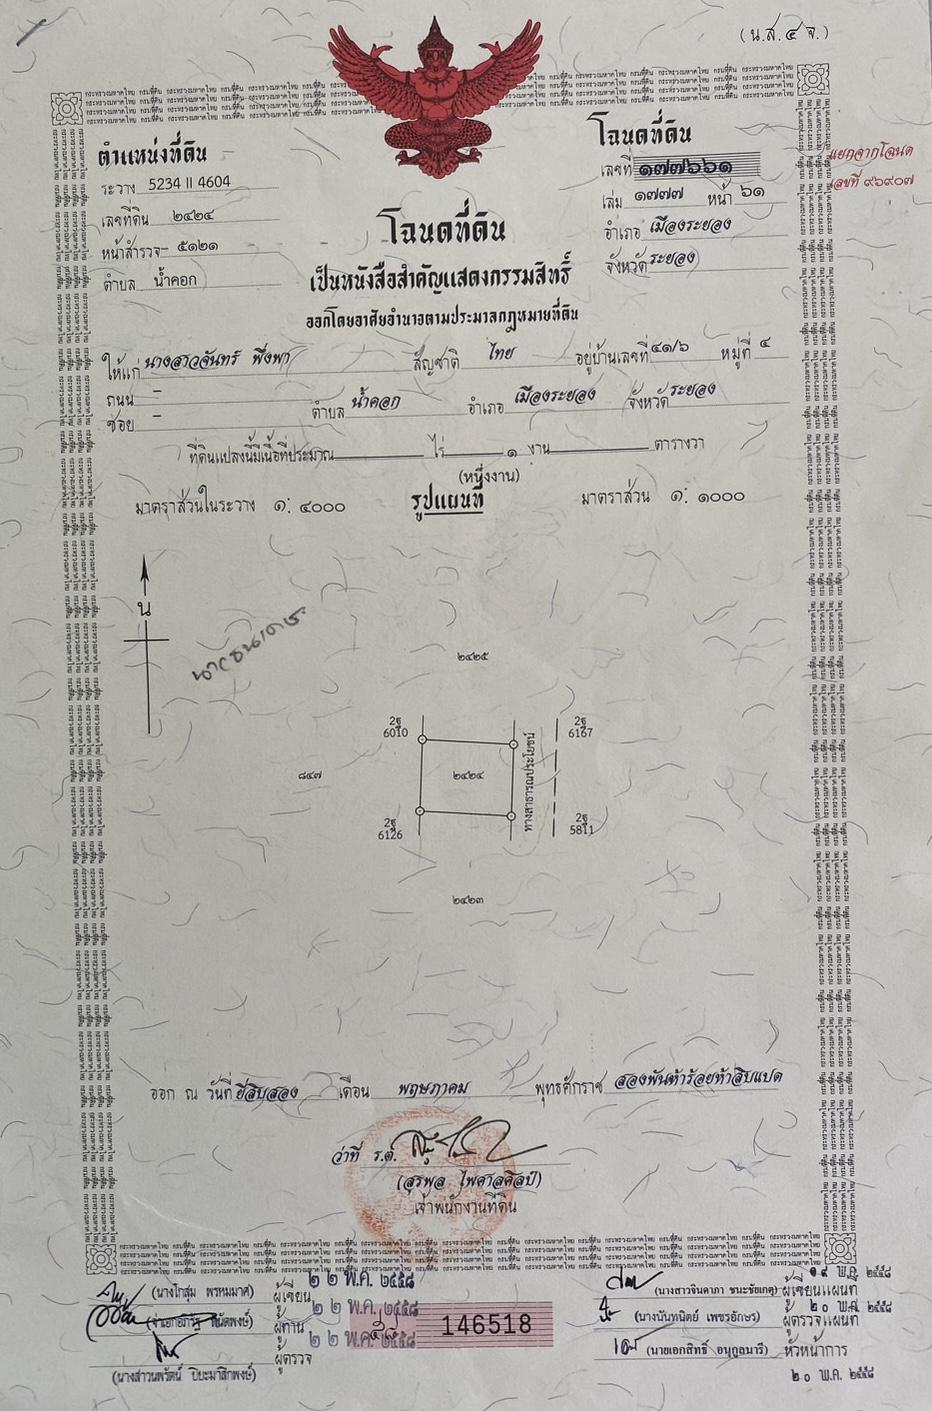 (น.ส.๔ จ.)
ตำแหน่งที่ดิน
ระวาง 5234 II 4604
เลขที่ดิน ๒๔๒๔
หน้าสำรวจ ๕๑๒๑
ตำบล น้ำคอก
โฉนดที่ดิน
เลขที่ ๑๗๗๖๖๑
เล่ม ๑๗๗๗ หน้า ๖๑
อำเภอ เมืองระยอง
จังหวัด ระยอง
แยกจากโฉนด
เลขที่ ๙๖๙๐๗
โฉนดที่ดิน
เป็นหนังสือสำคัญแสดงกรรมสิทธิ์
ออกโดยอาศัยอำนาจตามประมวลกฎหมายที่ดิน
ให้แก่ นางสาวจันทร์ พึ่งพา สัญชาติ ไทย อยู่บ้านเลขที่ ๔๑/๖ หมู่ที่ ๔
ถนน –
ซอย – ตำบล น้ำคอก อำเภอ เมืองระยอง จังหวัด ระยอง
ที่ดินแปลงนี้มีเนื้อที่ประมาณ ไร่ ๑ งาน ตารางวา
(หนึ่งงาน)
มาตราส่วนในระวาง ๑: ๔๐๐๐ รูปแผนที่ มาตราส่วน ๑: ๑๐๐๐
น
๒๔๒๕
2ฐ
6010
2ฐ
6167
๘๔๗
๒๔๒๔
ทางสาธารณประโยชน์
2ฐ
6126
2ฐ
5811
๒๔๒๓
ออก ณ วันที่ ยี่สิบสอง เดือน พฤษภาคม พุทธศักราช สองพันห้าร้อยห้าสิบแปด
ว่าที่ ร.ต.
(สุรพล ไพศาลศิลป์)
เจ้าพนักงานที่ดิน
(นางโกสุ่ม พรหมมาศ) ผู้เขียน ๒ ๒ พ.ค. ๒๕๕๘
ผู้ทาน ๒ ๒ พ.ค. ๒๕๕๘
ผู้ตรวจ ๒ ๒ พ.ค. ๒๕๕๘
(นางสาวนพรัตน์ ปิยะมาสิกพงษ์)
146518
(นางสาวจินดาภา ชนะชัยเกตุ) ผู้เขียนแผนที่ ๑๙ พ.ค. ๒๕๕๘
(นางนันทนิตย์ เพชรอักษร) ผู้ตรวจแผนที่ ๒๐ พ.ค. ๒๕๕๘
(นายเอกสิทธิ์ อนุกูลนารี) หัวหน้าการ
๒๐ พ.ค. ๒๕๕๘